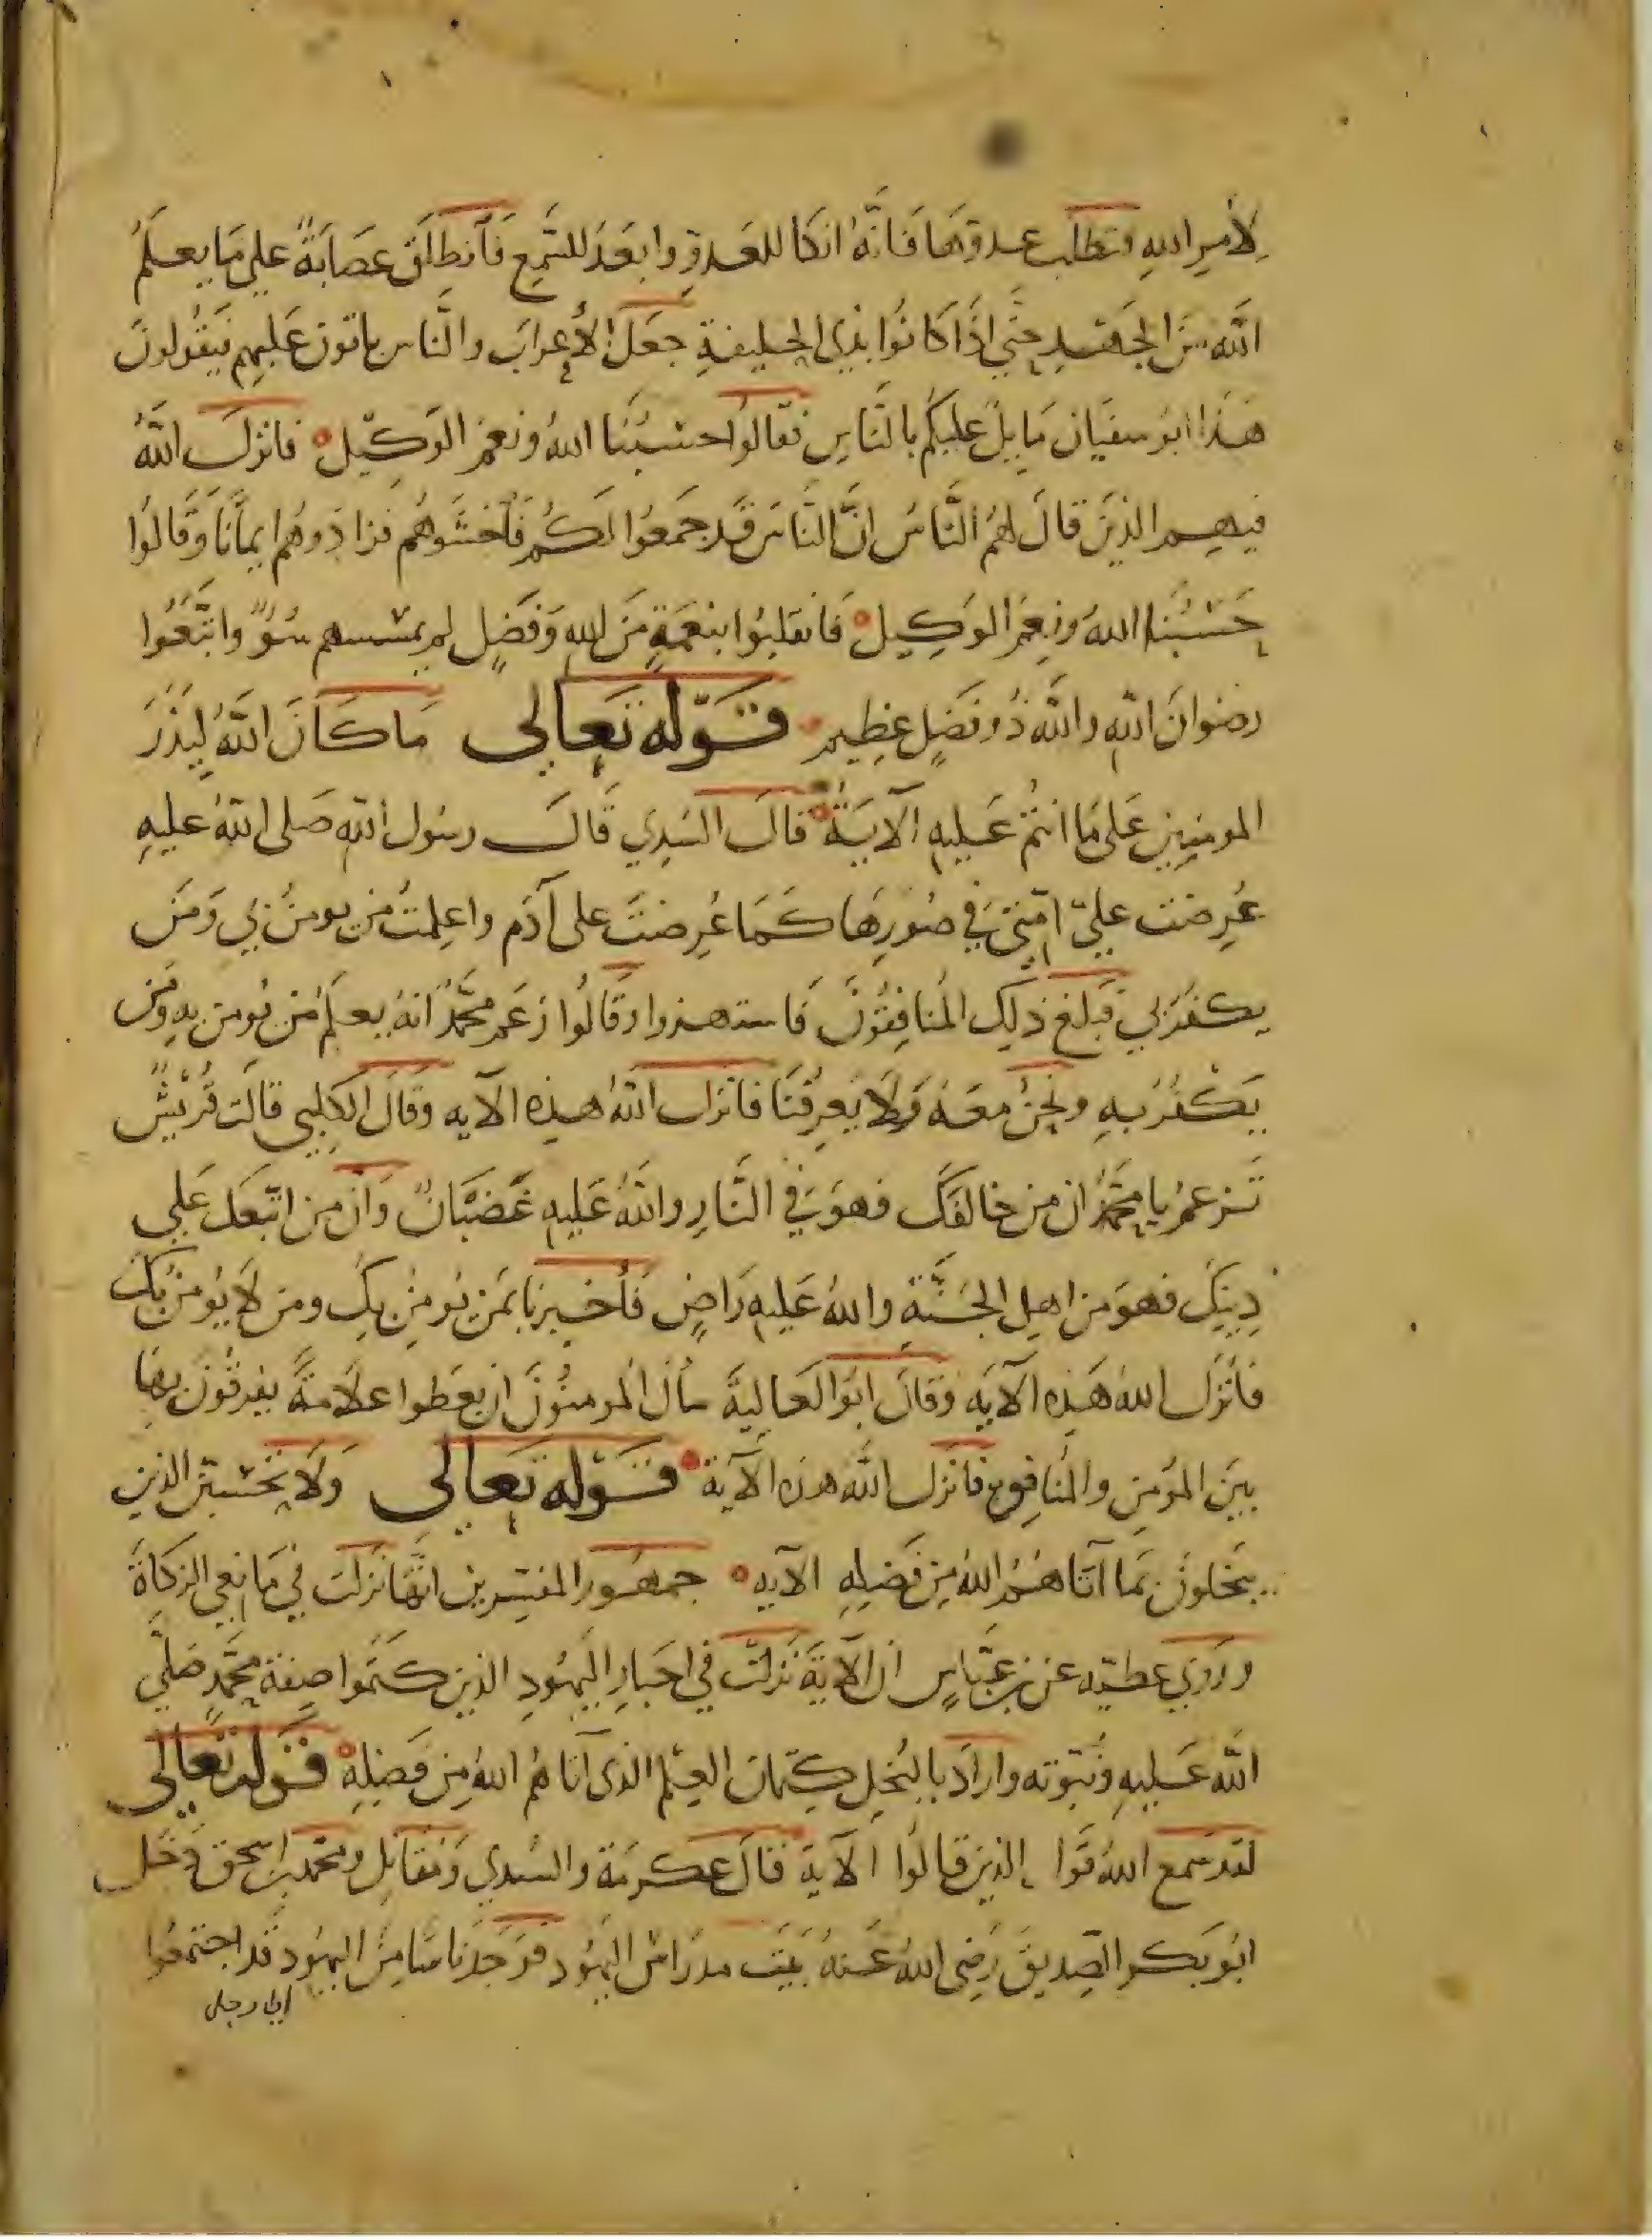 لأمر الله وتطلب عدوها فانه انكا للعدو وابعد للسمع فانطلق عصابة علي ما يعلم
الله من الجهد حتي اذا كانوا بذي الحليفة جعل الأعراب والناس ياتون عليهم فيقولون
هذا ابو سفيان مايل عليكم بالناس فقالوا حسبنا الله ونعم الوكيل فانزل الله
فيهم الذين قال لهم الناس ان الناس قد جمعوا لكم فاخشوهم فزادوهم ايمانا وقالوا
حسبنا الله ونعم الوكيل فانقلبوا بنعمة من الله وفضل لم يمسسهم سوء واتبعوا
رضوان الله والله ذو فضل عظيم قوله تعالى ما كان الله ليذر
المومنين على ما انتم عليه الآية قال السدي قال رسول الله صلى الله عليه
عرضت علي امتي في صورها كما عرضت على آدم واعلمت من يومن بي ومن
يكفر بي فبلغ ذلك المنافقون فاستهزوا وقالوا زعم محمد انه يعلم من يومن به ومن
يكفر به ونحن معه ولا يعرفنا فانزل الله هذه الآيه وقال الكلبي قالت قريش
تزعم يا محمد ان من خالفك فهو في النار والله عليه غضبان وان من اتبعك علي
دينك فهو من اهل الجنة والله عليه راض فأخبرنا بمن يومن بك ومن لا يومن بك
فأنزل الله هذه الآيه وقال ابو العالية سأل المومنون ان يعطوا علامة يفرقون بها
بين المؤمن والمنافق فانزل الله هذه الآية قوله تعالى ولا يحسبن الذين
يبخلون بما آتاهم الله من فضله الآيه جمهور المفسرين انها نزلت في مانعي الزكاة
وروي عطيه عن بن عباس ان الآية نزلت في احبار اليهود الذين كتموا صفة محمد صلي
الله عليه ونبوته واراد بالبخل كتمان العلم الذى آتاهم الله من فضله قوله تعالى
لقد سمع الله قول الذين قالوا الآية قال عكرمة والسدي ومقاتل ومحمد بن اسحق دخل
ابو بكر الصديق رضى الله عنه بيت مدراس اليهود فوجد ناسا من اليهود قد اجتمعوا
الى رجل